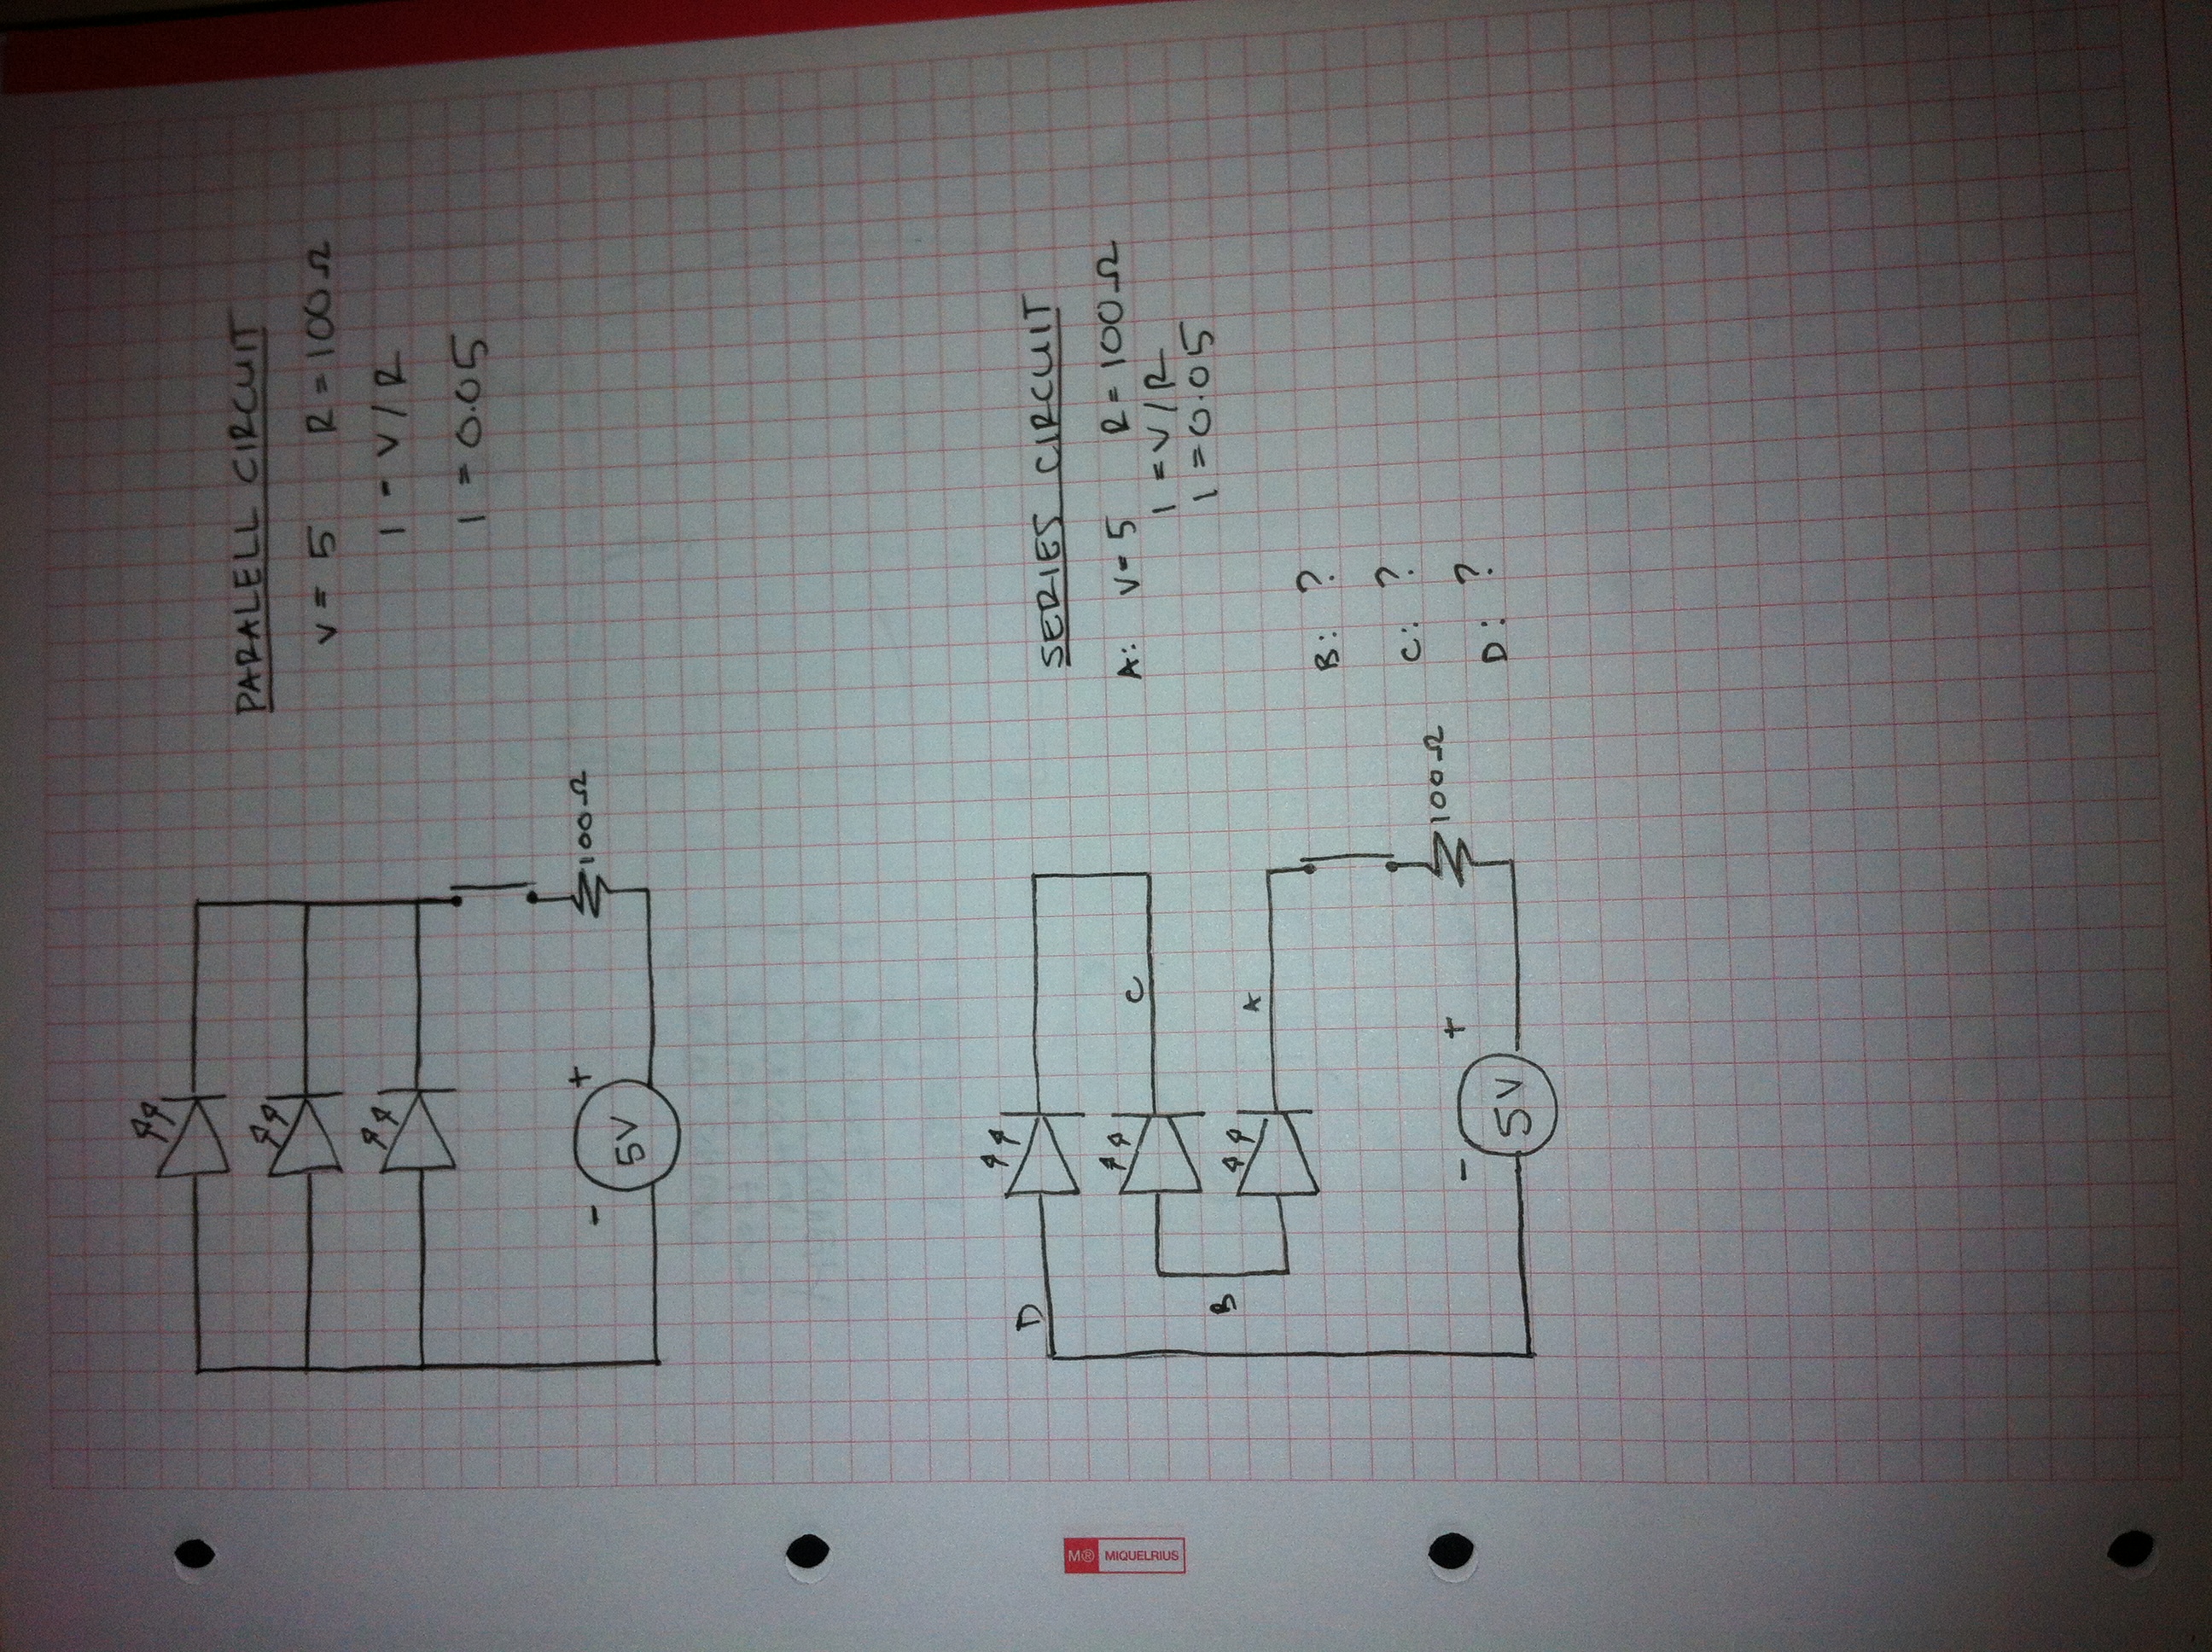 PARALELL CIRCUIT
V = 5 R = 100Ω
I = V/R
I = 0.05
100Ω
+
5V
-
SERIES CIRCUIT
A: V = 5 R = 100Ω
I = V/R
I = 0.05
B: ?
C: ?
D: ?
100Ω
C
A
+
5V
-
B
D
M® MIQUELRIUS